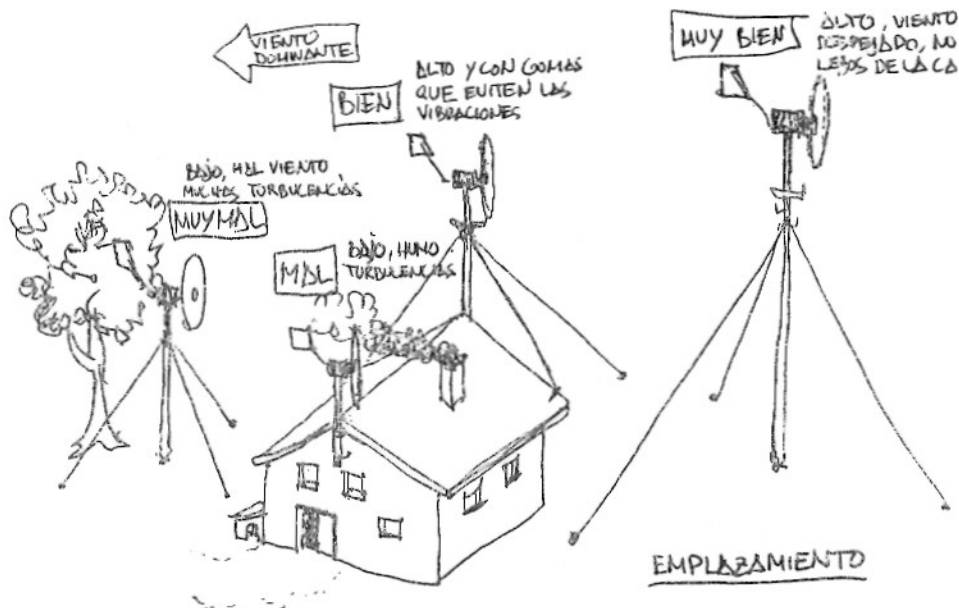 VIENTO
DOMINANTE
BIEN
ALTO Y CON GOMAS
QUE EVITEN LAS
VIBRACIONES
MUY BIEN
ALTO, VIENTO
DESPEJADO, NO
LEJOS DE LA CA
BAJO, MAL VIENTO
MUCHAS TURBULENCIAS
MUY MAL
MAL
BAJO, HUMO
TURBULENCIAS
EMPLAZAMIENTO